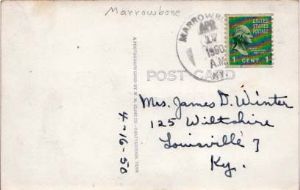 Marrowbone
MARROWBONE
APR
17
1950
A.M.
KY.
UNITED STATES
POSTAGE
1 CENT 1
POST CARD
Mrs. James D. Winter
125 Wiltshire
Louisville 7
Ky.
4-16-50